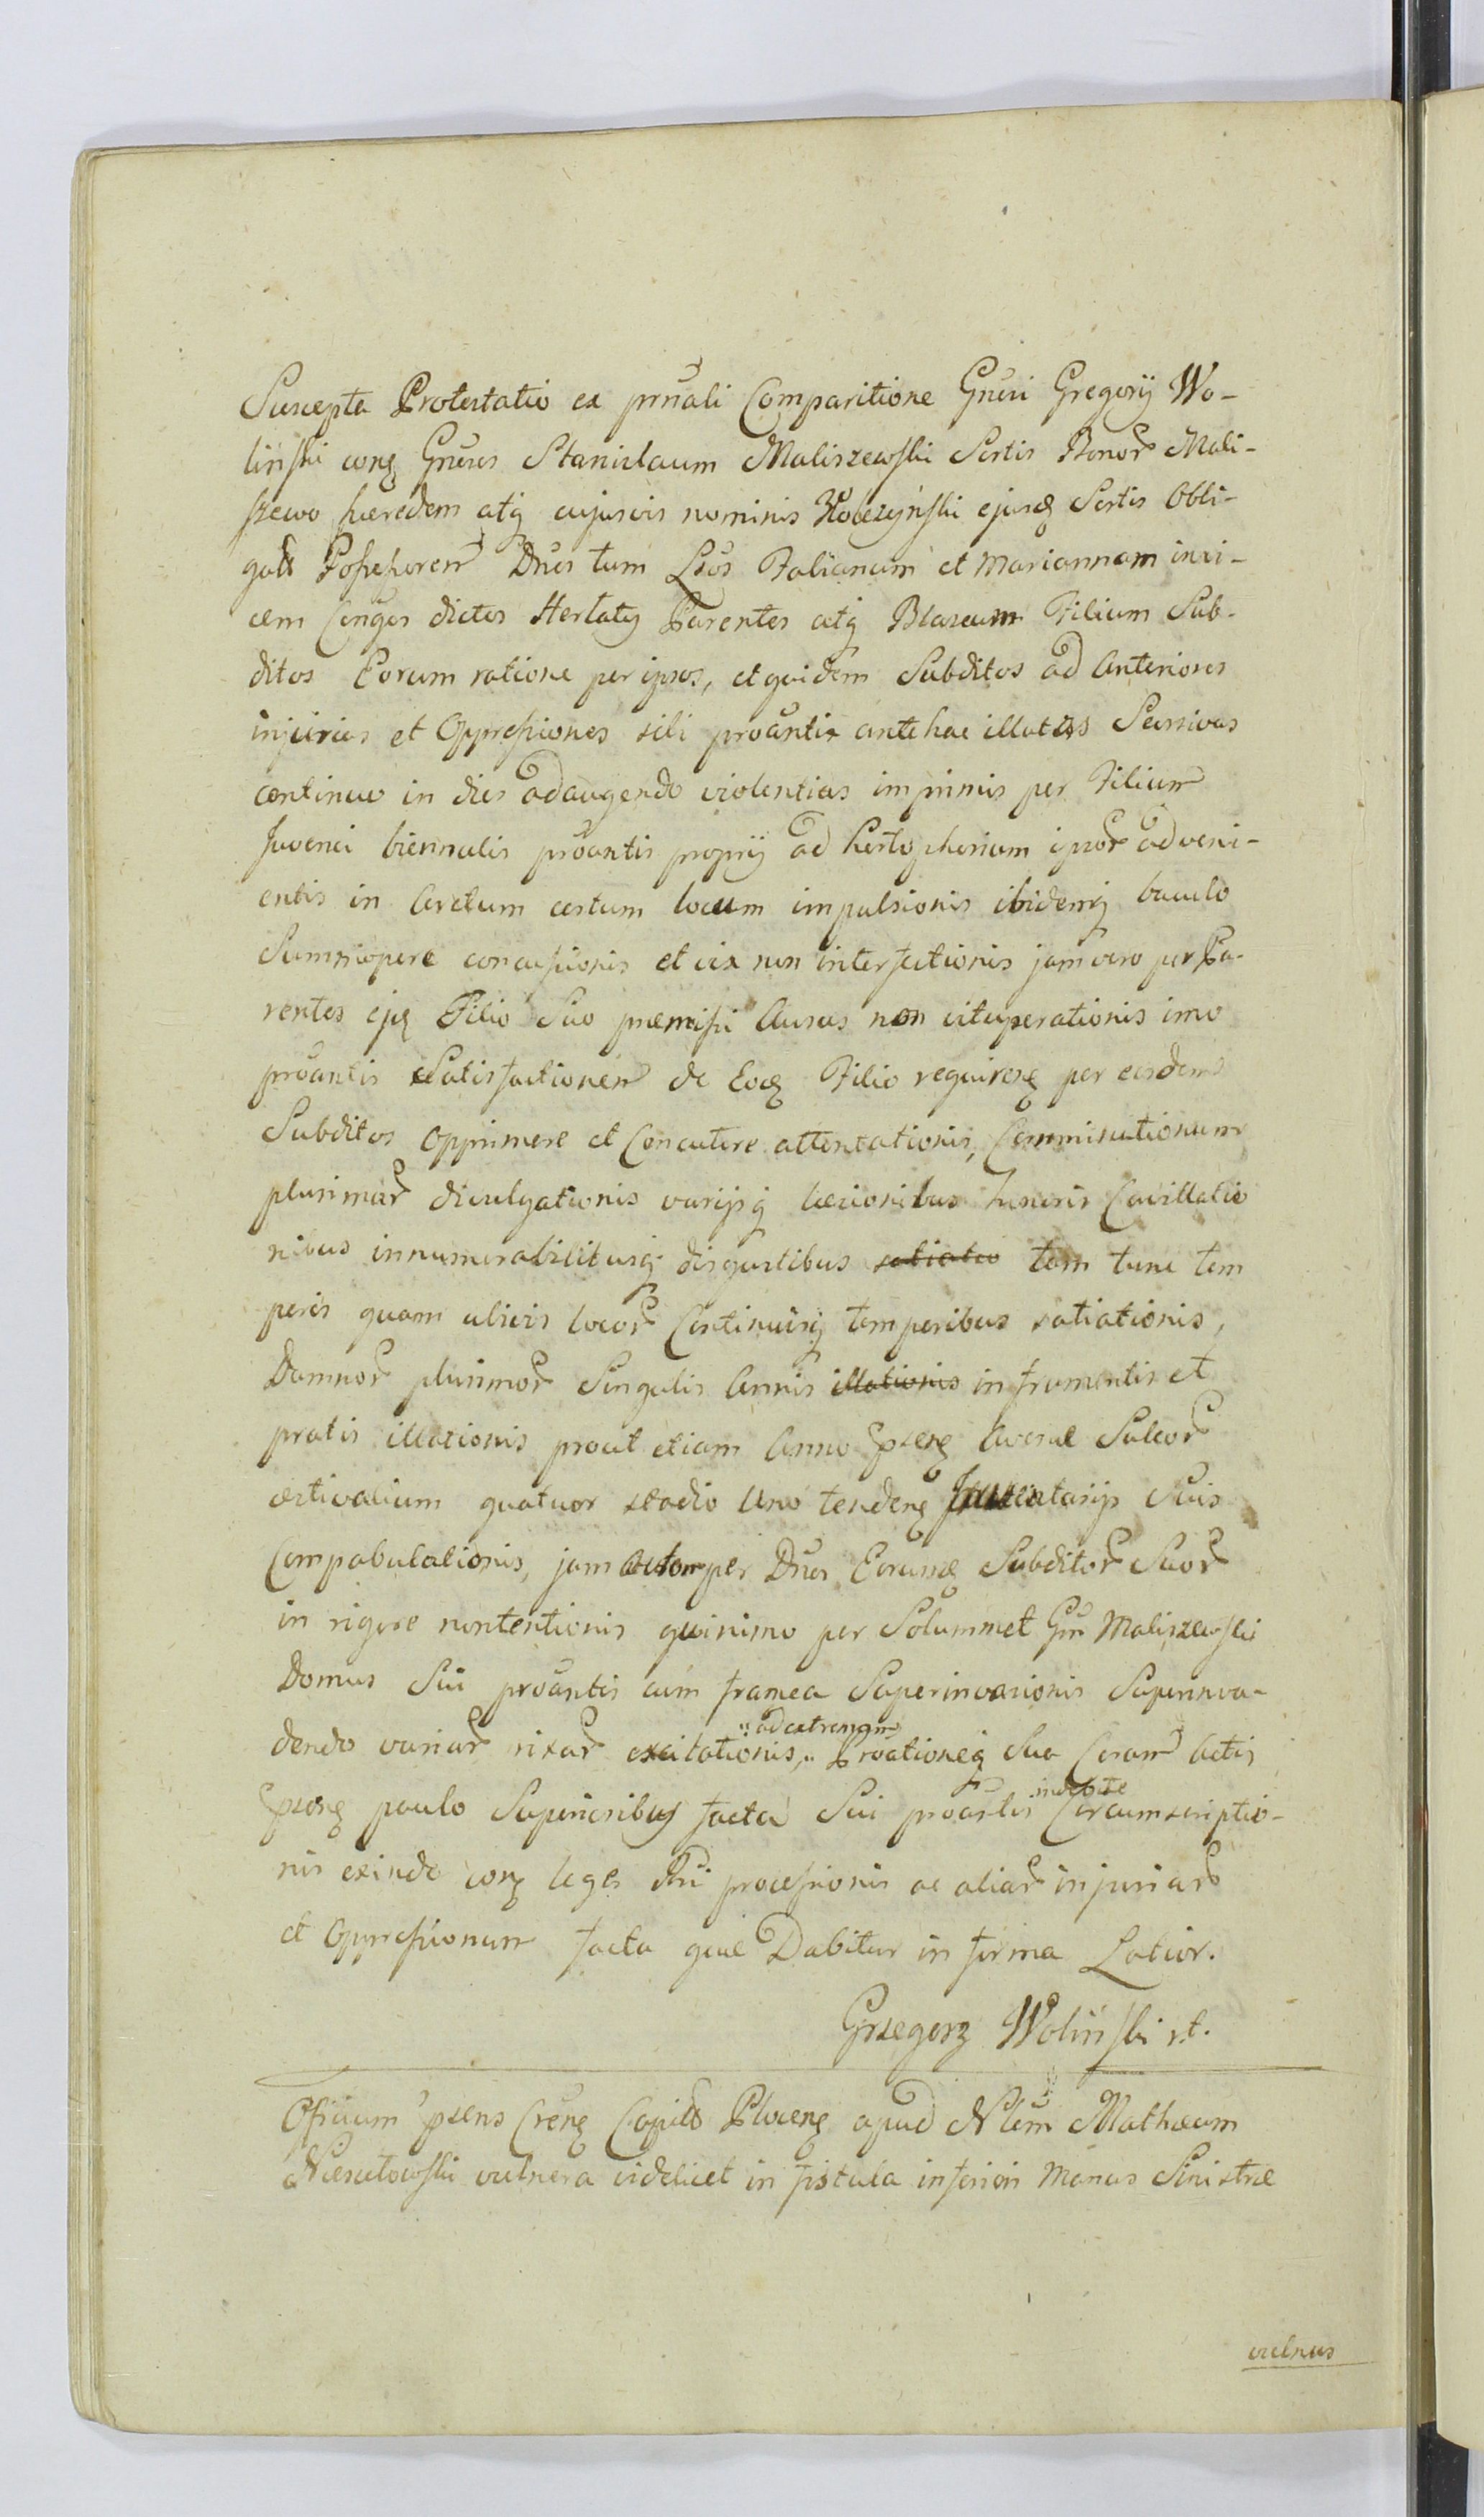 Suscepta Protestatio ex prnali Comparitione Gnesi Gregorij Wo-
liński conq Gnesos Stanislaum Maliszewski Sortis Bonor Mali-
szewo hæredem atq cujusvis nominis Kobezyński ejusq Sortis Obli-
gatt Possessorem Dnos tum Lsos Falianum et Mariannam invi-
cem Conges dictos Herlaty Parentes atq Blaseum Filium Sub-
ditos Eorum ratione per ipsos, et quidem Subditos ad Anteriores
injurias et Oppressiones sibi proantis antehac illatas Sessivas
continuo in dies adaugendo violentias imprimis per Filium
Juvenci biennalis proantis proprij ad hertopherium ipsor adveni-
entis in Arctum certum locum impulsionis ibidemq baculo
Summopere concussionis et vix non interfectionis jam vero per Pa-
rentes ejq Filio Suo præmissi Ausus non vituperationis imo
proantis Satisfactionem de Eoq Filio requirenq per eosdem
Subditos opprimere et Concutere attentationis, Comminutionum
plurimar divulgationis varijsq læsionibus honoris Cavillatio
nibus innumerabilibusq disgustibus satiatio tam tunc tem
poris quam alivis locor Continuisq temporibus satiationis,
Damnor plurimor Singulis Annis illationis in frumentis et
pratis illationis prout etiam Anno præsenq Avenæ Sulcor
æstivalium quatuor stadio Uno tendenq Suis
Compabulationis, jam Actor per Dnos Eorumq Subditor Suor
in rigore nontentionis quinimo per Solummet Gm Maliszewski
Domus Sui proantis cum framea Superinvasionis Superinva-
dendo variar rixar excitationis, ad extremum Proationeq Sua Coram Actis
præsenq paulo Superioribus facta Sui proantis indebite Circumscriptio-
nis exinde conq leges Rni processionis ac aliar injuriar
et Oppressionum facta quæ Dabitur in forma Latior.
Grzegorz Woliński st.
Officium præsens Crenq Capitt Plocenq apud Nlem Mathæum
Niesutowski vulnera videlicet in fistula inferiori Manus Sinistræ
vulnus